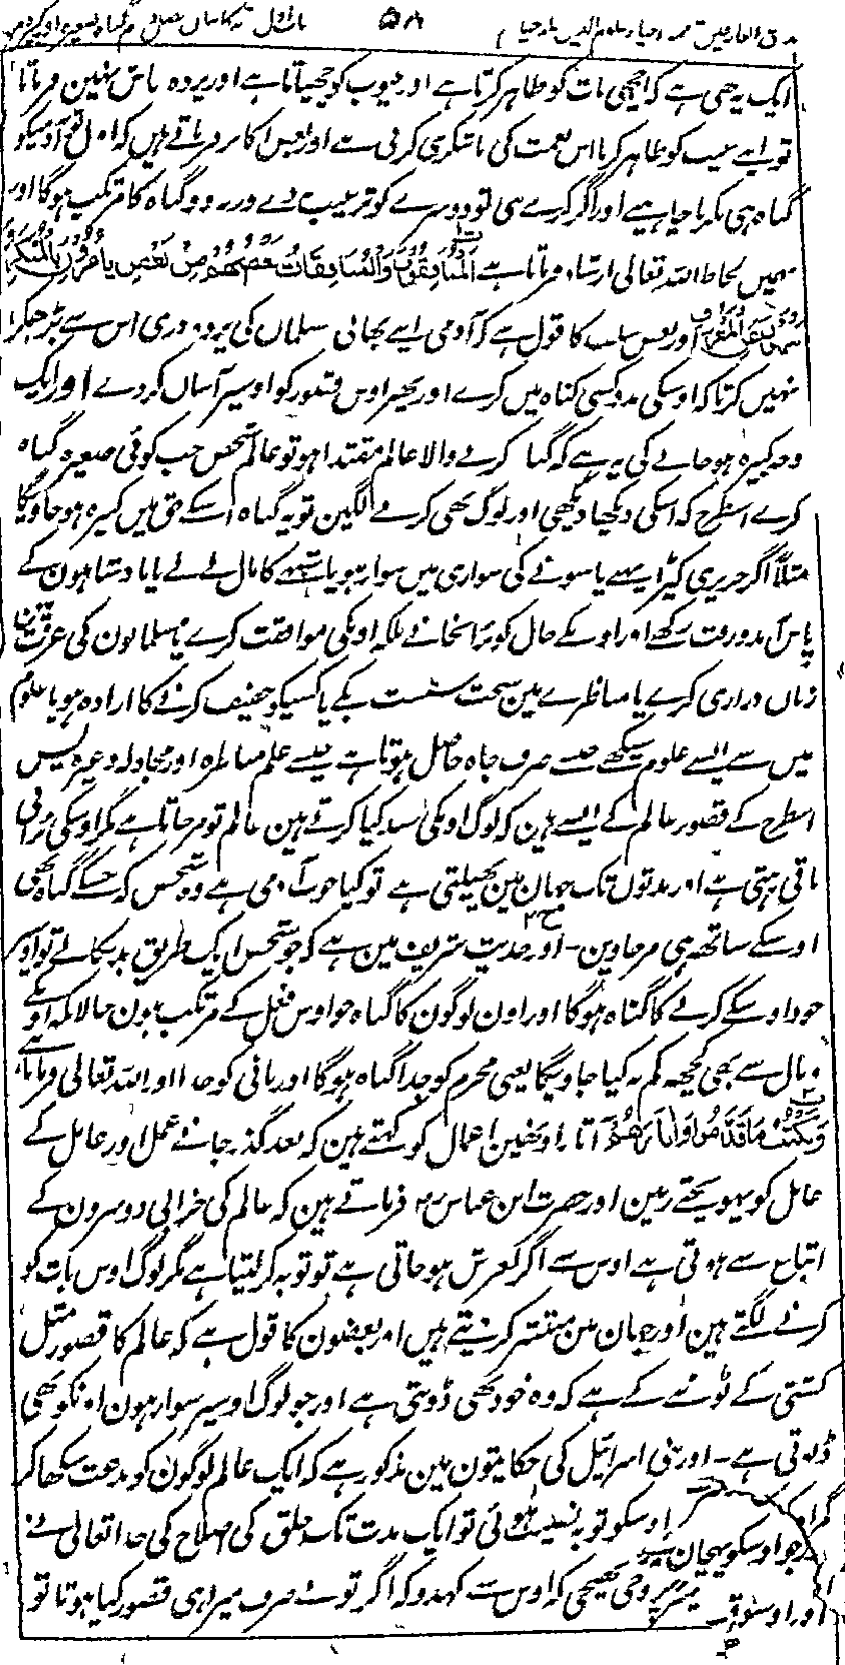 مذاق العارفین ترجمہ احیاء علوم الدین جلد چہارم ۵۸ باب اول توبہ کا بیان فصل دوم گناہ صغیرہ اور کبیرہ میں
ایک یہ بھی ہے کہ اچھی بات کو ظاہر کرتا ہے اور عیوب کو چھپاتا ہے اور پردہ فاش نہین فرماتا
تو اپنے عیب کو ظاہر کرنا اس نعمت کی ناشکری کرنی ہے اور بعض اکابر فرماتے ہیں کہ اول تو آدمیکو
گناہ ہی نکرنا چاہیے اور اگر کرے ہی تو دوسرے کو ترغیب نہ دے ورنہ دو گناہ کا مرتکب ہوگا اور
بہمیں لحاظ اللہ تعالی ارشاد فرماتا ہے المنافقون والمنافقات بعضھم من بعض یامرون بالمنکر و
ینھون عن المعروف اور بعض سلف کا قول ہے کہ آدمی اپنے بھائی مسلمان کی پردہ دری اس سے بڑھکر
نہیں کرتا کہ اوسکی مدد کسی گناہ میں کرے اور پھر اوس قصور کو اوسپر آسان کردے اور ایک
وجہ کبیرہ ہوجانے کی یہ ہے کہ گناہ کرنے والا عالم مقتدا ہو تو عالم شخص جب کوئی صغیرہ گناہ
کرے اسطرح کہ اسکی دیکھا دیکھی اور لوگ بھی کرنے لگین تو یہ گناہ اسکے حق میں کبیرہ ہوجاویگا
مثلاً اگر حریری کپڑا پہنے یا سونے کی سواری میں سوار ہو یا شبہے کا مال لے لے یا بادشاہون کے
پاس آمدورفت رکھے اور اونکے حال کو برا نجانے بلکہ اونکی موافقت کرے یا مسلمانون کی عزت میں
زبان درازی کرے یا مناظرے مین سخت سست بکے یا کسیکو خفیف کرنے کا ارادہ ہو یا علوم
میں سے ایسے علوم سیکھے جنسے صرف جاہ حاصل ہوتا ہے جیسے علم مناظرہ اور مجادلہ وغیرہ پس
اسطرح کے قصور عالم کے ایسے ہین کہ لوگ اونکی سند کیا کرتے ہین عالم تو مرجاتا ہے مگر اوسکی برائی
باقی رہتی ہے اور مدتوں تک جہان مین پھیلتی ہے تو کیا خوب آدمی ہے وہ شخص کہ جسکے گناہ بھی
اوسکے ساتھ ہی مرجاوین۔ اور حدیث شریف مین ہے کہ جو شخص ایک طریق بد نکالے تو اوسپر
خود اوسکے کرنے کا گناہ ہوگا اور اون لوگون کا گناہ جو اوس فعل کے مرتکب ہون حالانکہ اونکے
وبال سے بھی کچھ کم نہ کیا جاویگا یعنی مجرم کو جدا گناہ ہوگا اور بانی کو جدا اور اللہ تعالی فرماتا ہے
ونکتب ما قدموا وآثارھم آثار اونھین اعمال کو کہتے ہین کہ بعد گذر جانے عمل اور عامل کے
عامل کو پہونچتے رہین اور حضرت ابن عباس رض فرماتے ہین کہ عالم کی خرابی دوسرون کے
اتباع سے ہوتی ہے اوس سے اگر لغزش ہوجاتی ہے تو توبہ کرلیتا ہے مگر لوگ اوس بات کو
کرنے لگتے ہین اور جہان مین منتشر کردیتے ہیں اور بعضون کا قول ہے کہ عالم کا قصور مثل
کشتی کے ٹوٹنے کے ہے کہ وہ خود بھی ڈوبتی ہے اور جو لوگ اوسپر سوار ہون اونکو بھی
ڈبوتی ہے۔ اور بنی اسرائیل کی حکایتون مین مذکور ہے کہ ایک عالم لوگون کو بدعت سکھا کر
گمراہ اوسکو توبہ نصیب ہوئی تو ایک مدت تک خلق کی اصلاح کی خدا تعالی نے
وحی بھیجی کہ اوس سے کہدو کہ اگر تونے صرف میرا ہی قصور کیا ہوتا تو